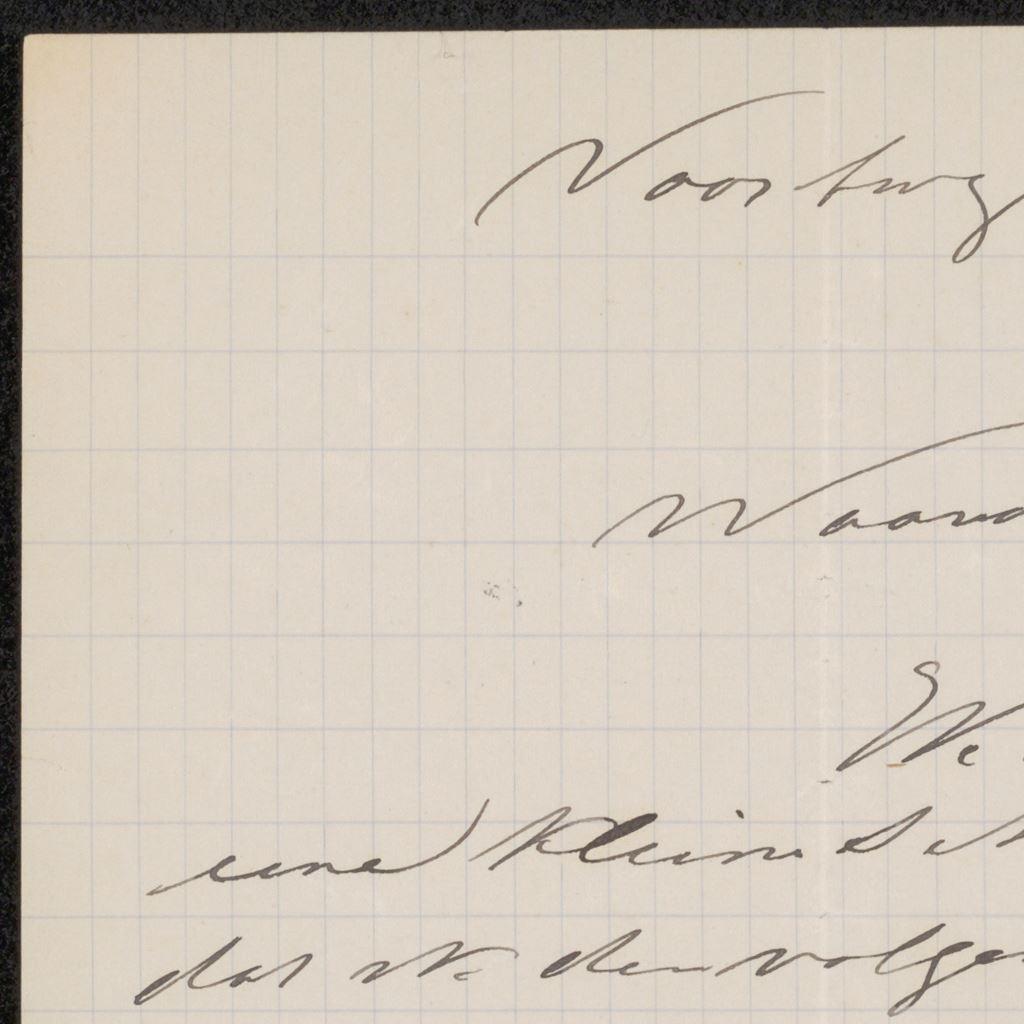 Voorburg
Waard
We
eene kleine
dat ik den volgen